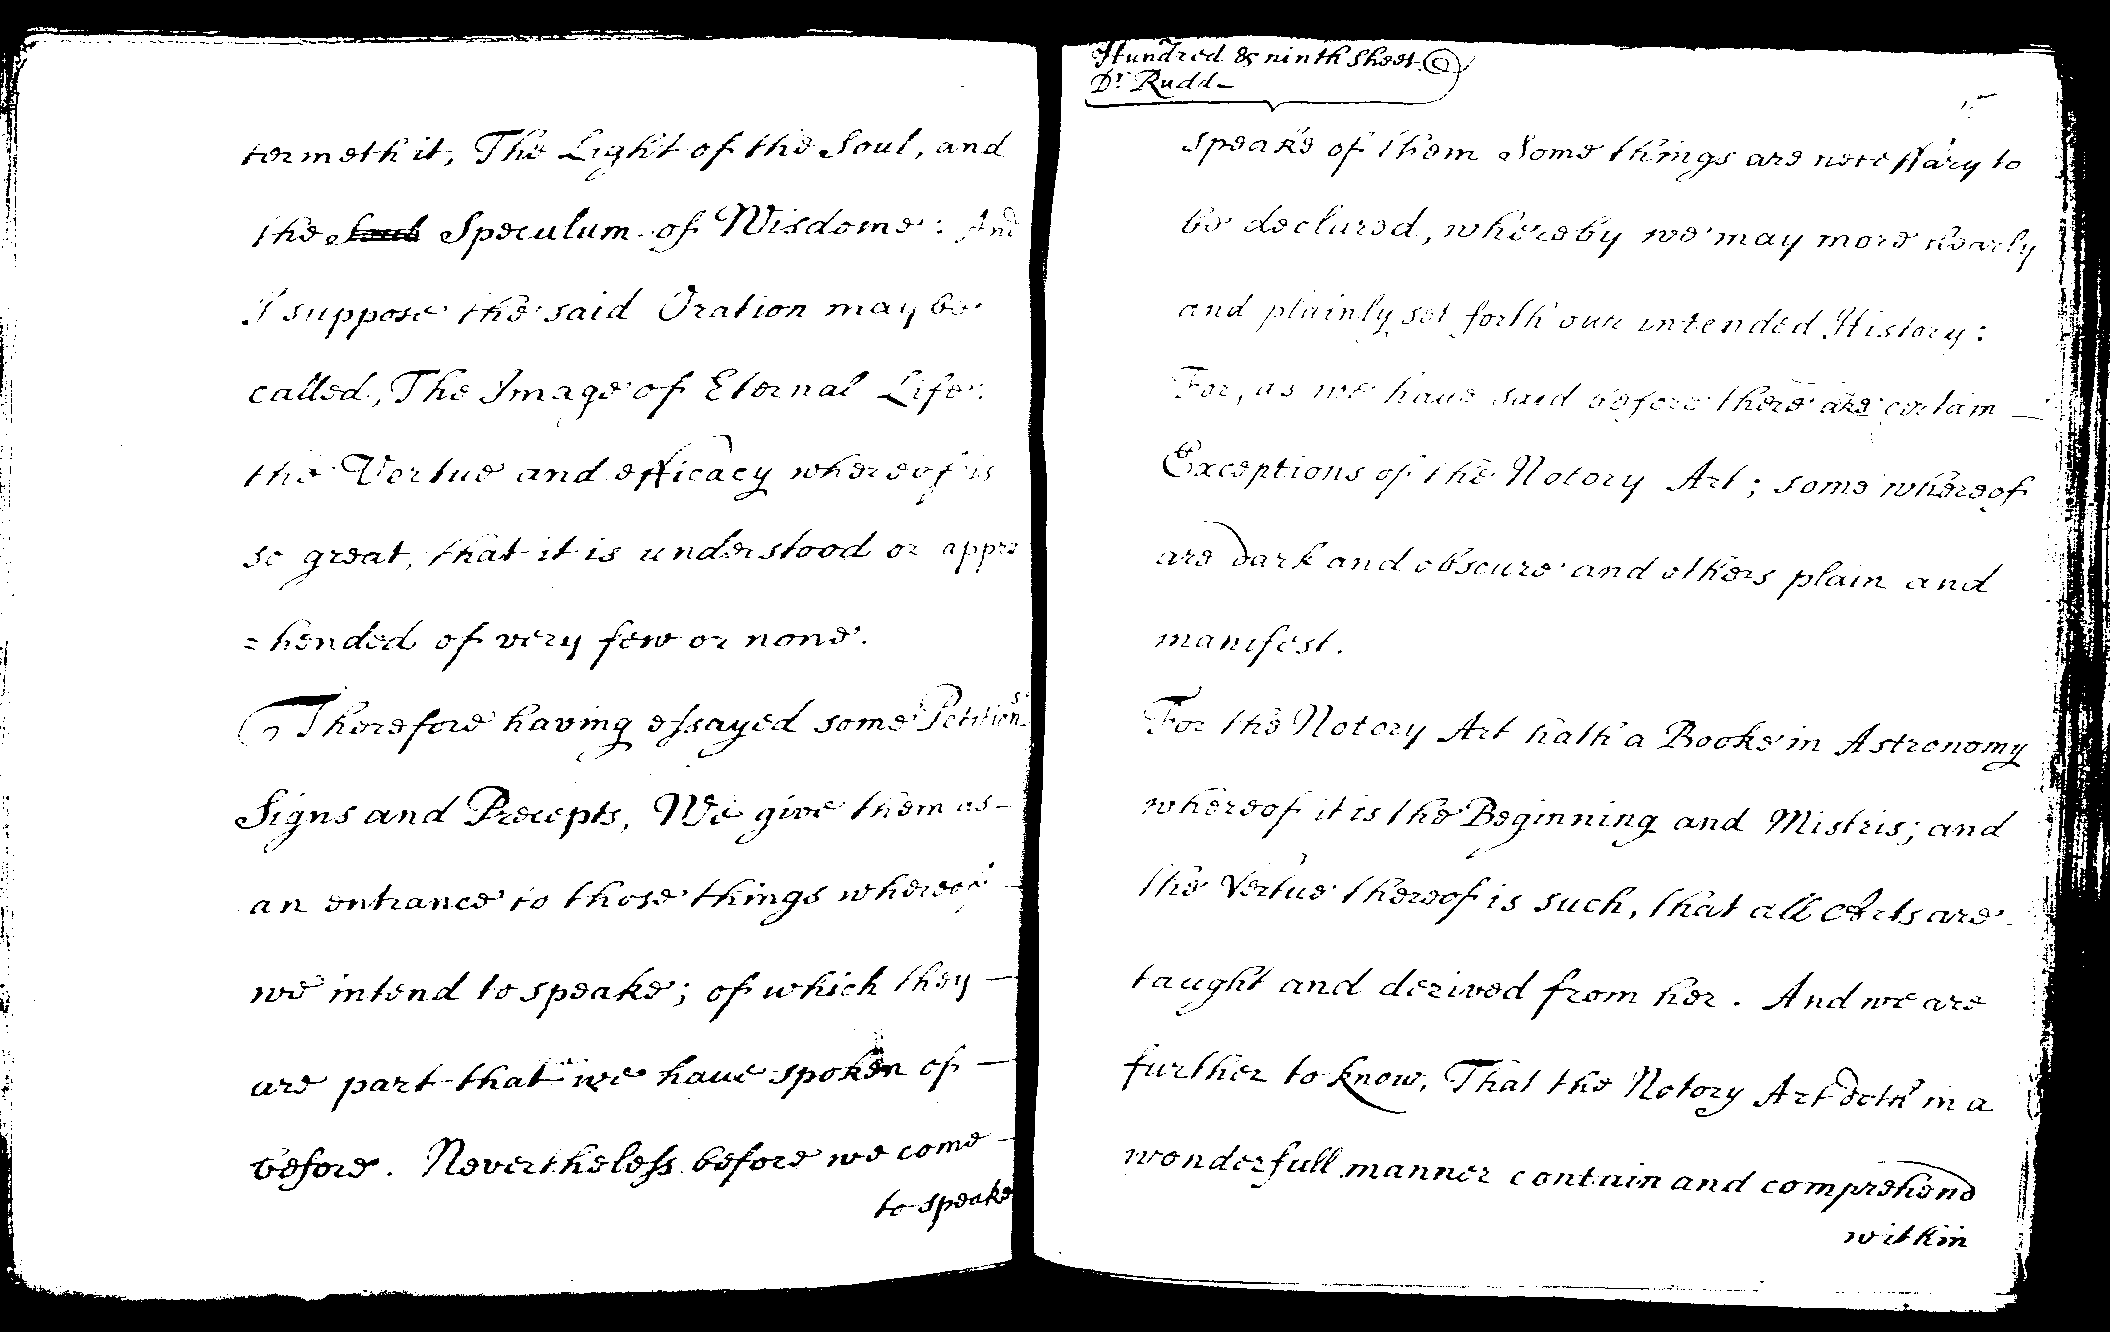 termeth it, The Light of the Soul, and
the Speculum of Wisdome: And
I suppose the said Oration may be
called, The Image of Eternal Life:
the Vertue and efficacy whereof is
so great, that it is understood or appre
=hended of very few or none.
Therefore having essayed some Petitions
Signs and Precepts, We give them as-
an entrance to those things whereof -
we intend to speake; of which they -
are part that we have spoken of -
before. Nevertheless before we come -
to speake
Hundred & ninth sheet ©
Dr Rudd-
speake of them Some things are necessary to
be declared, whereby we may more clearly
and plainly set forth our intended History:
For, as we have said before there are certain -
Exceptions of the Notory Art; some whereof
are dark and obscure and others plain and
manifest.
For the Notory Art hath a Booke in Astronomy
whereof it is the Beginning and Mistris; and
the Vertue thereof is such, that all Arts are
taught and derived from her. And we are
further to know, That the Notory Art doth in a
wonderfull manner contain and comprehend
within